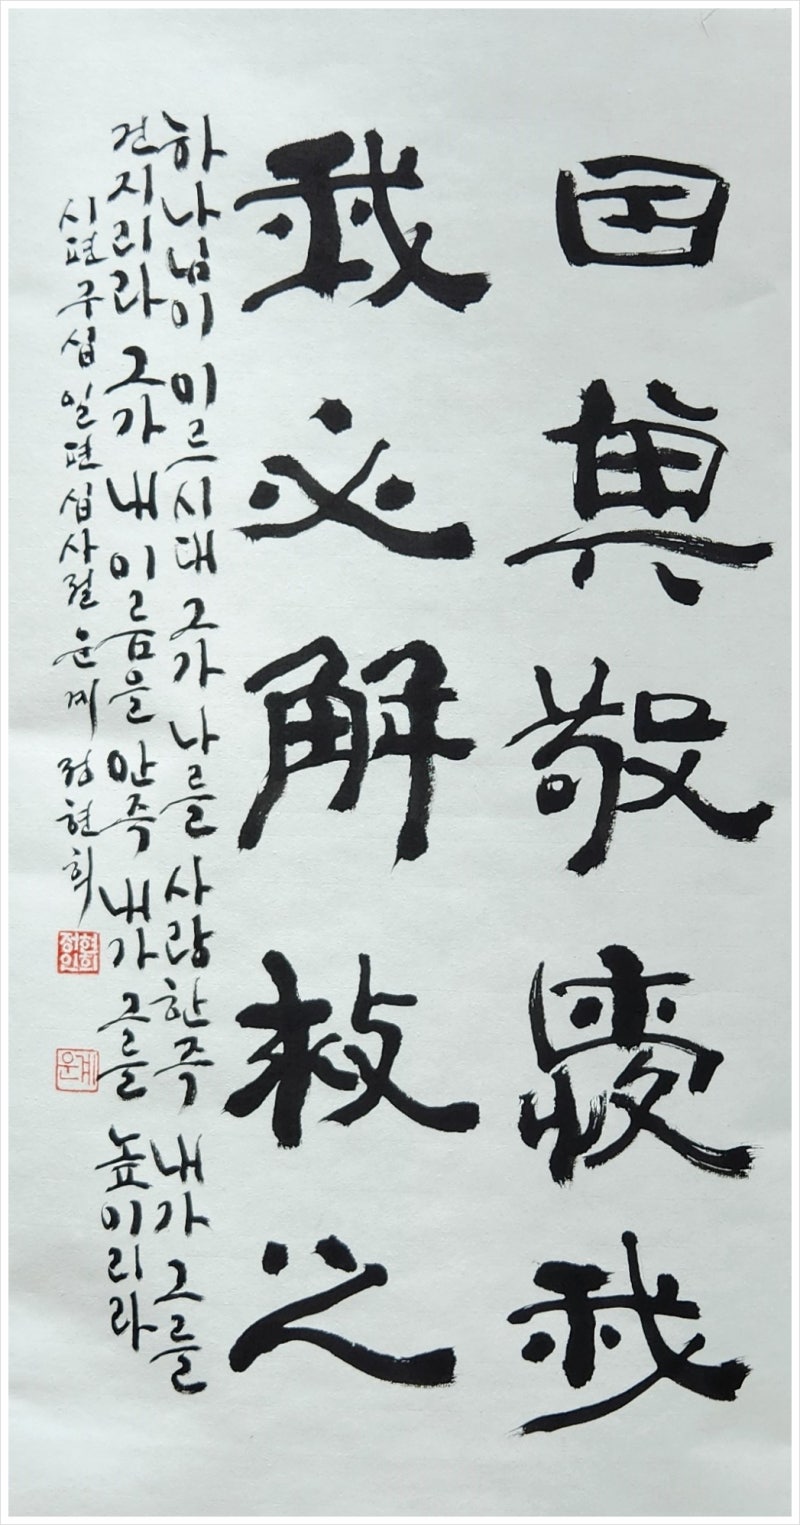 囙其敬愛我
我必解救之
하나님이 이르시대 그가 나를 사랑한즉 내가 그를
건지리라 그가 내 이름을 안즉 내가 그를 높이리라
시편 구십일편 십사절 운계 정현희
정현희인
운계